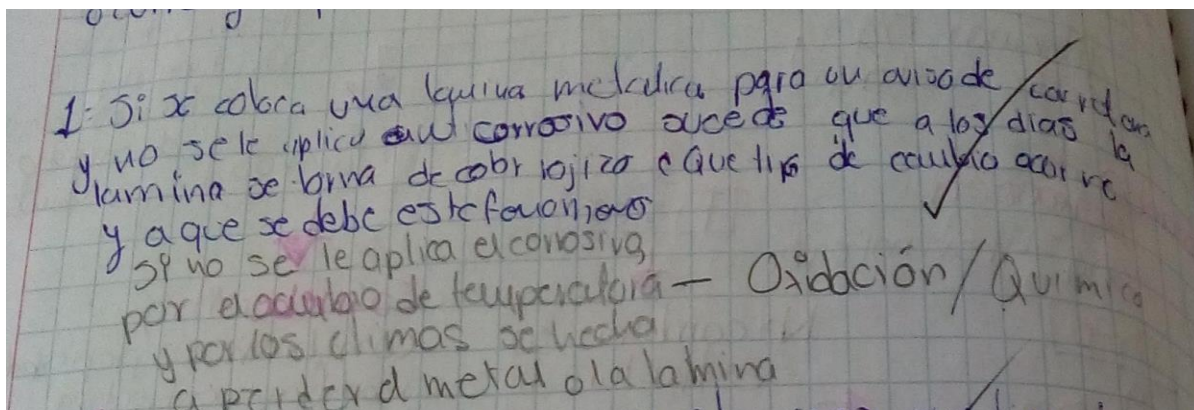 1: Si se coloca una lamina metalica para un aviso de carretera
y no se le aplica aul corrosivo sucede que a los dias la
lamina se torna de color rojizo ¿Que tipo de cambio ocurre
y a que se debe este fenomeno
si no se le aplica el corrosivo
por el cambio de temperatura — Oxidación / Quimico
y por los climas se hecha
a perder el metal o la lamina